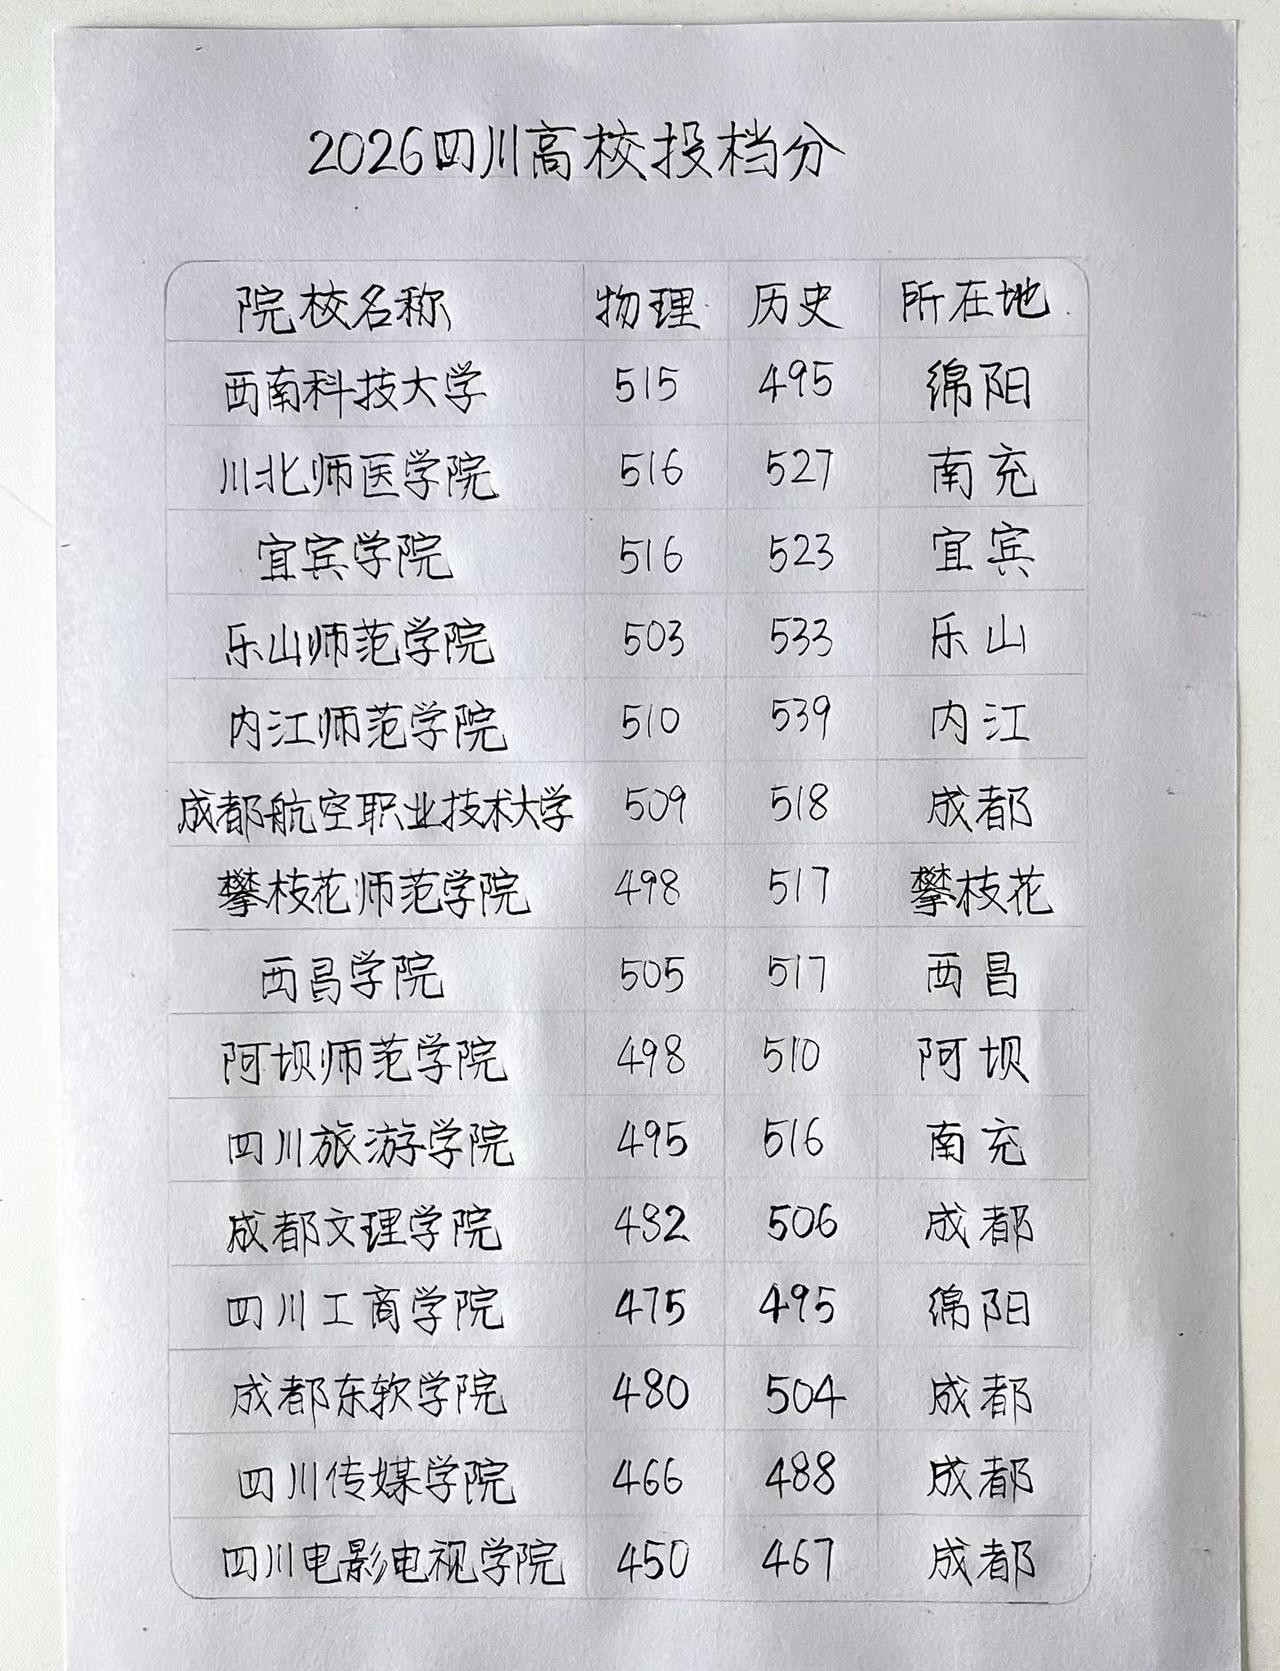 2026四川高校投档分
院校名称 物理 历史 所在地
西南科技大学 515 495 绵阳
川北师医学院 516 527 南充
宜宾学院 516 523 宜宾
乐山师范学院 503 533 乐山
内江师范学院 510 539 内江
成都航空职业技术大学 509 518 成都
攀枝花师范学院 498 517 攀枝花
西昌学院 505 517 西昌
阿坝师范学院 498 510 阿坝
四川旅游学院 495 516 南充
成都文理学院 482 506 成都
四川工商学院 475 495 绵阳
成都东软学院 480 504 成都
四川传媒学院 466 488 成都
四川电影电视学院 450 467 成都